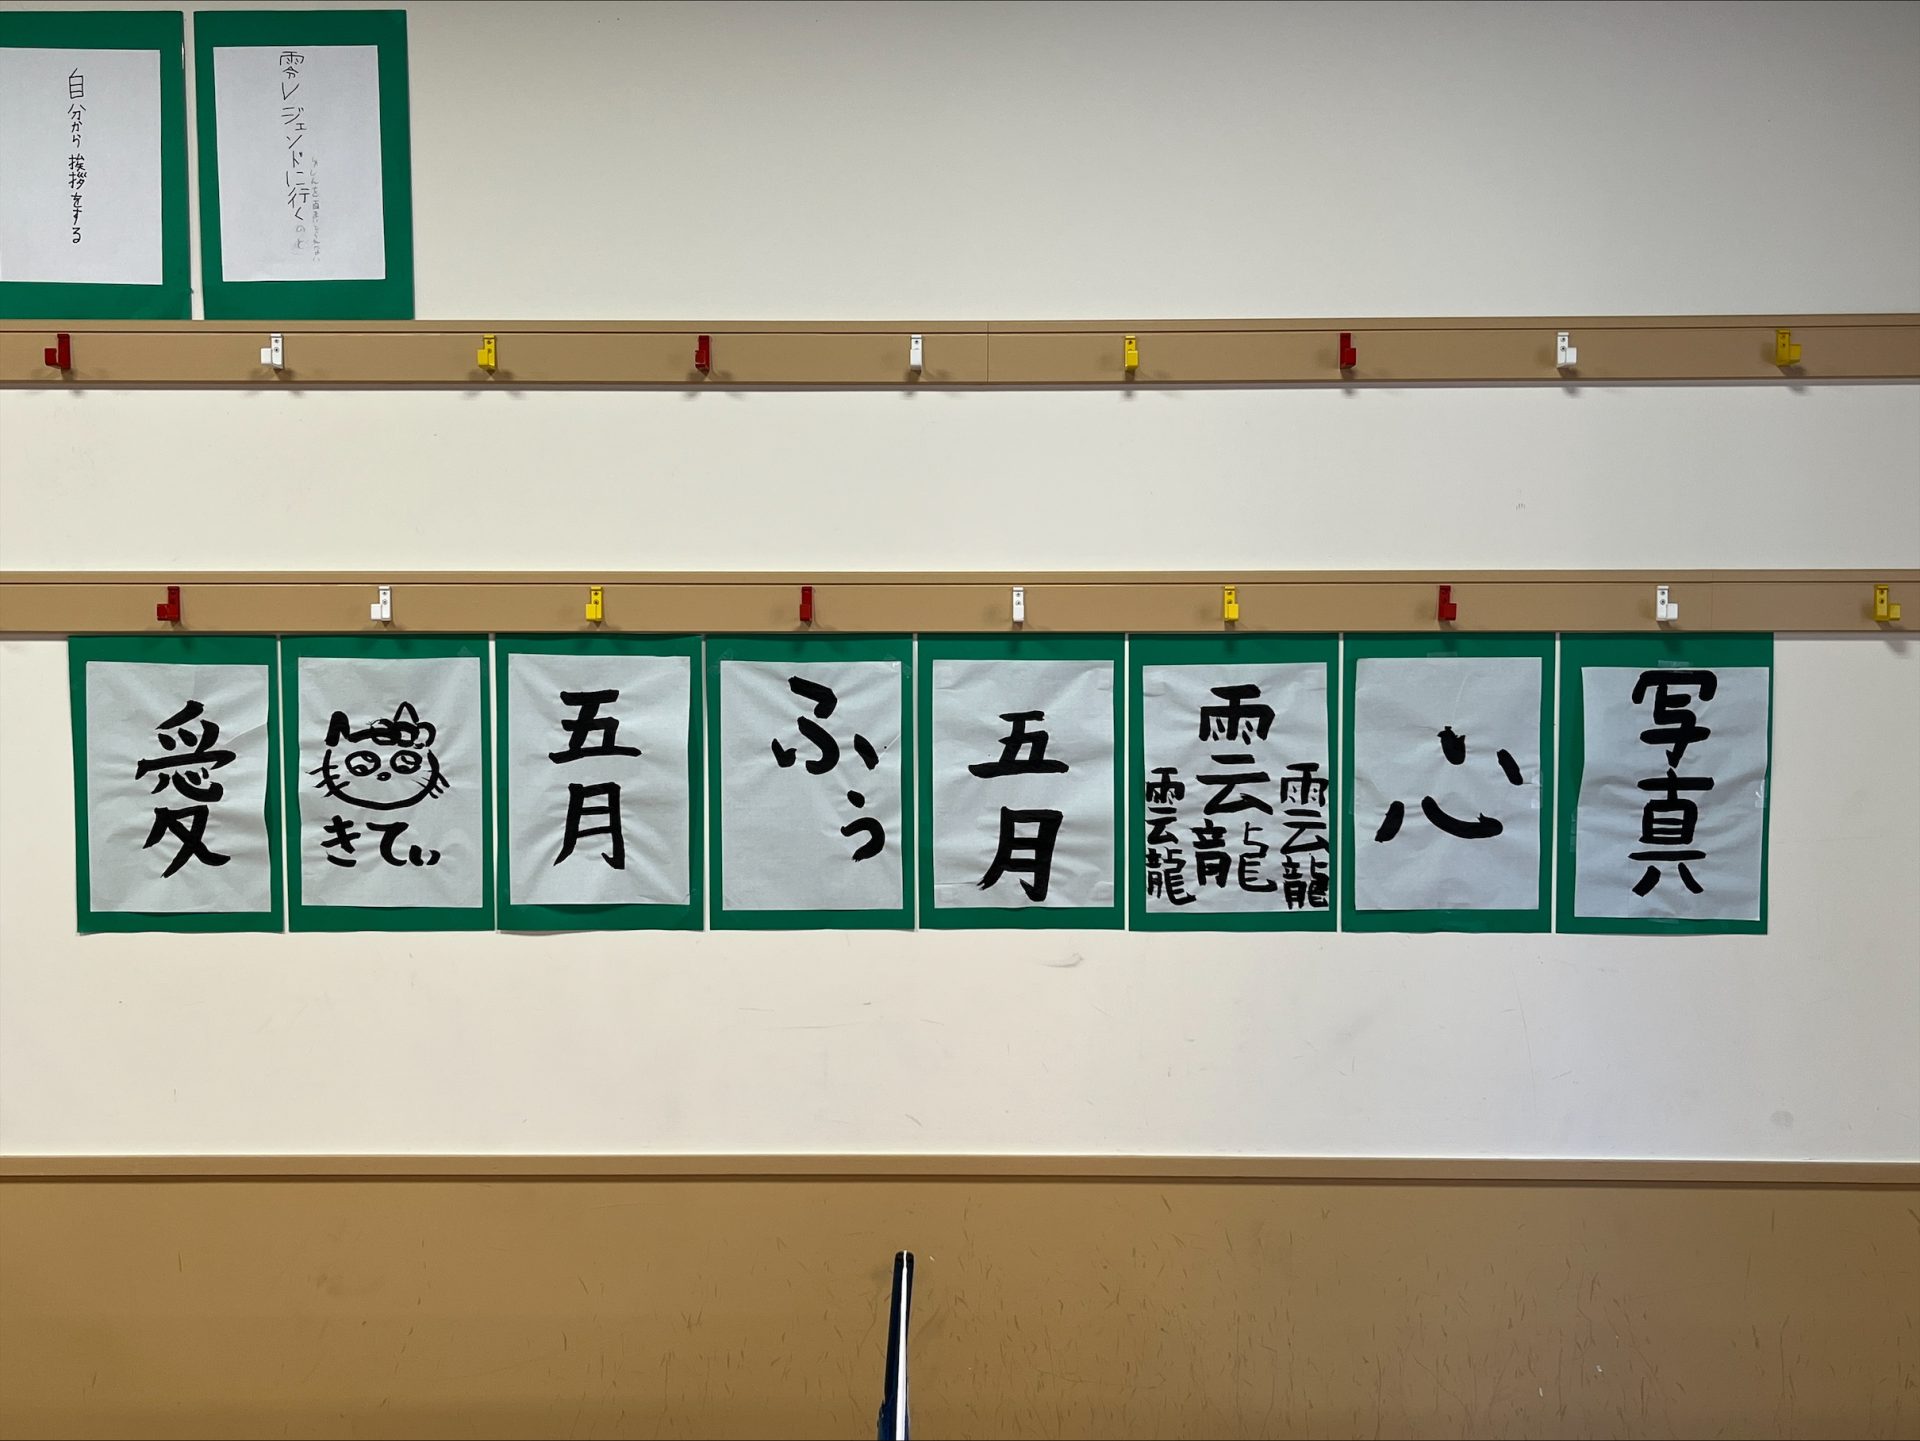 自分から挨拶をする
零レジェンドに行く
愛
きてぃ
五月
ふぅ
五月
雲龍
雲龍
雲龍
心
写真